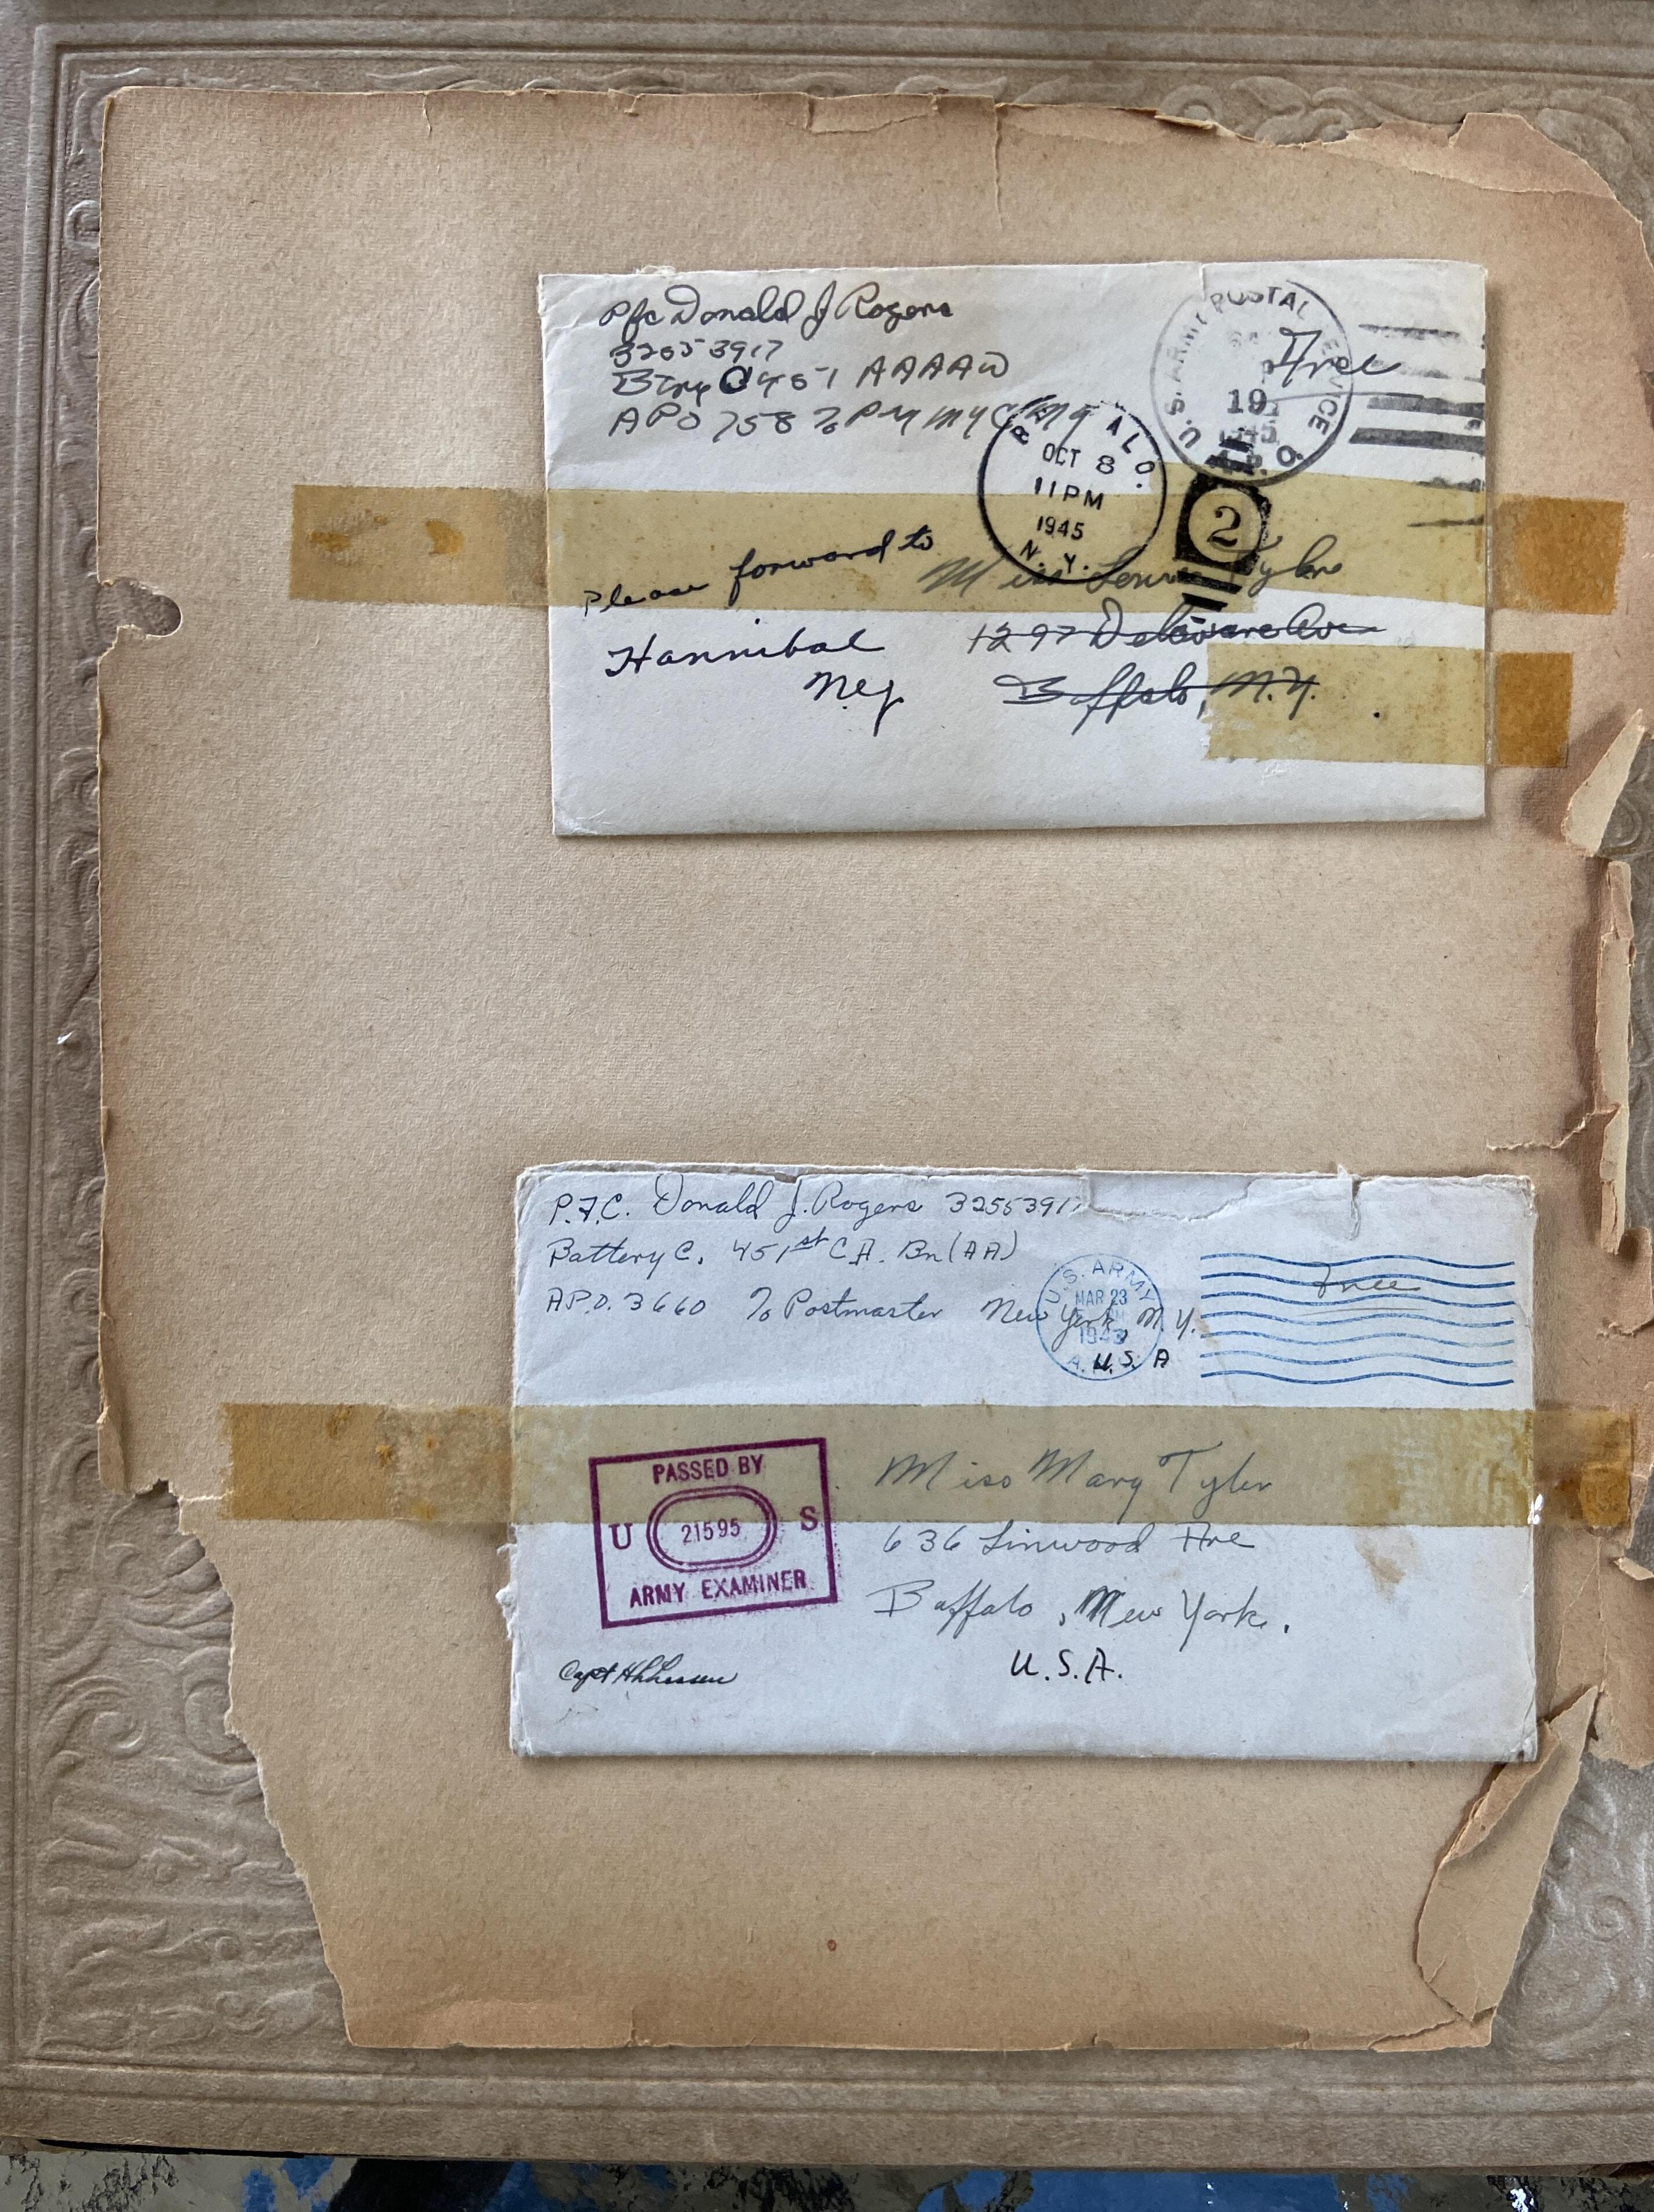 Pfc Donald J Rogers
32553917
Btry C 451 AAAAW
APO 758 % PM NYC NY
U.S. ARMY POSTAL SERVICE
19
1945
A.P.O.
Free
BUFFALO.
OCT 8
11 PM
1945
N.Y.
2
Please forward to
Miss Tyler
Hannibal
N.Y.
1297 Delaware Ave
Buffalo, N.Y.
P.F.C. Donald J. Rogers 32553917
Battery C. 451st C.A. Bn (AA)
A.P.O. 3660 % Postmaster New York, N.Y.
U.S.A
U.S. ARMY
MAR 23
PM
1943
A.P.O.
Free
PASSED BY
U 21595 S
ARMY EXAMINER
Miss Mary Tyler
636 Linwood Ave
Buffalo, New York.
U.S.A.
Capt